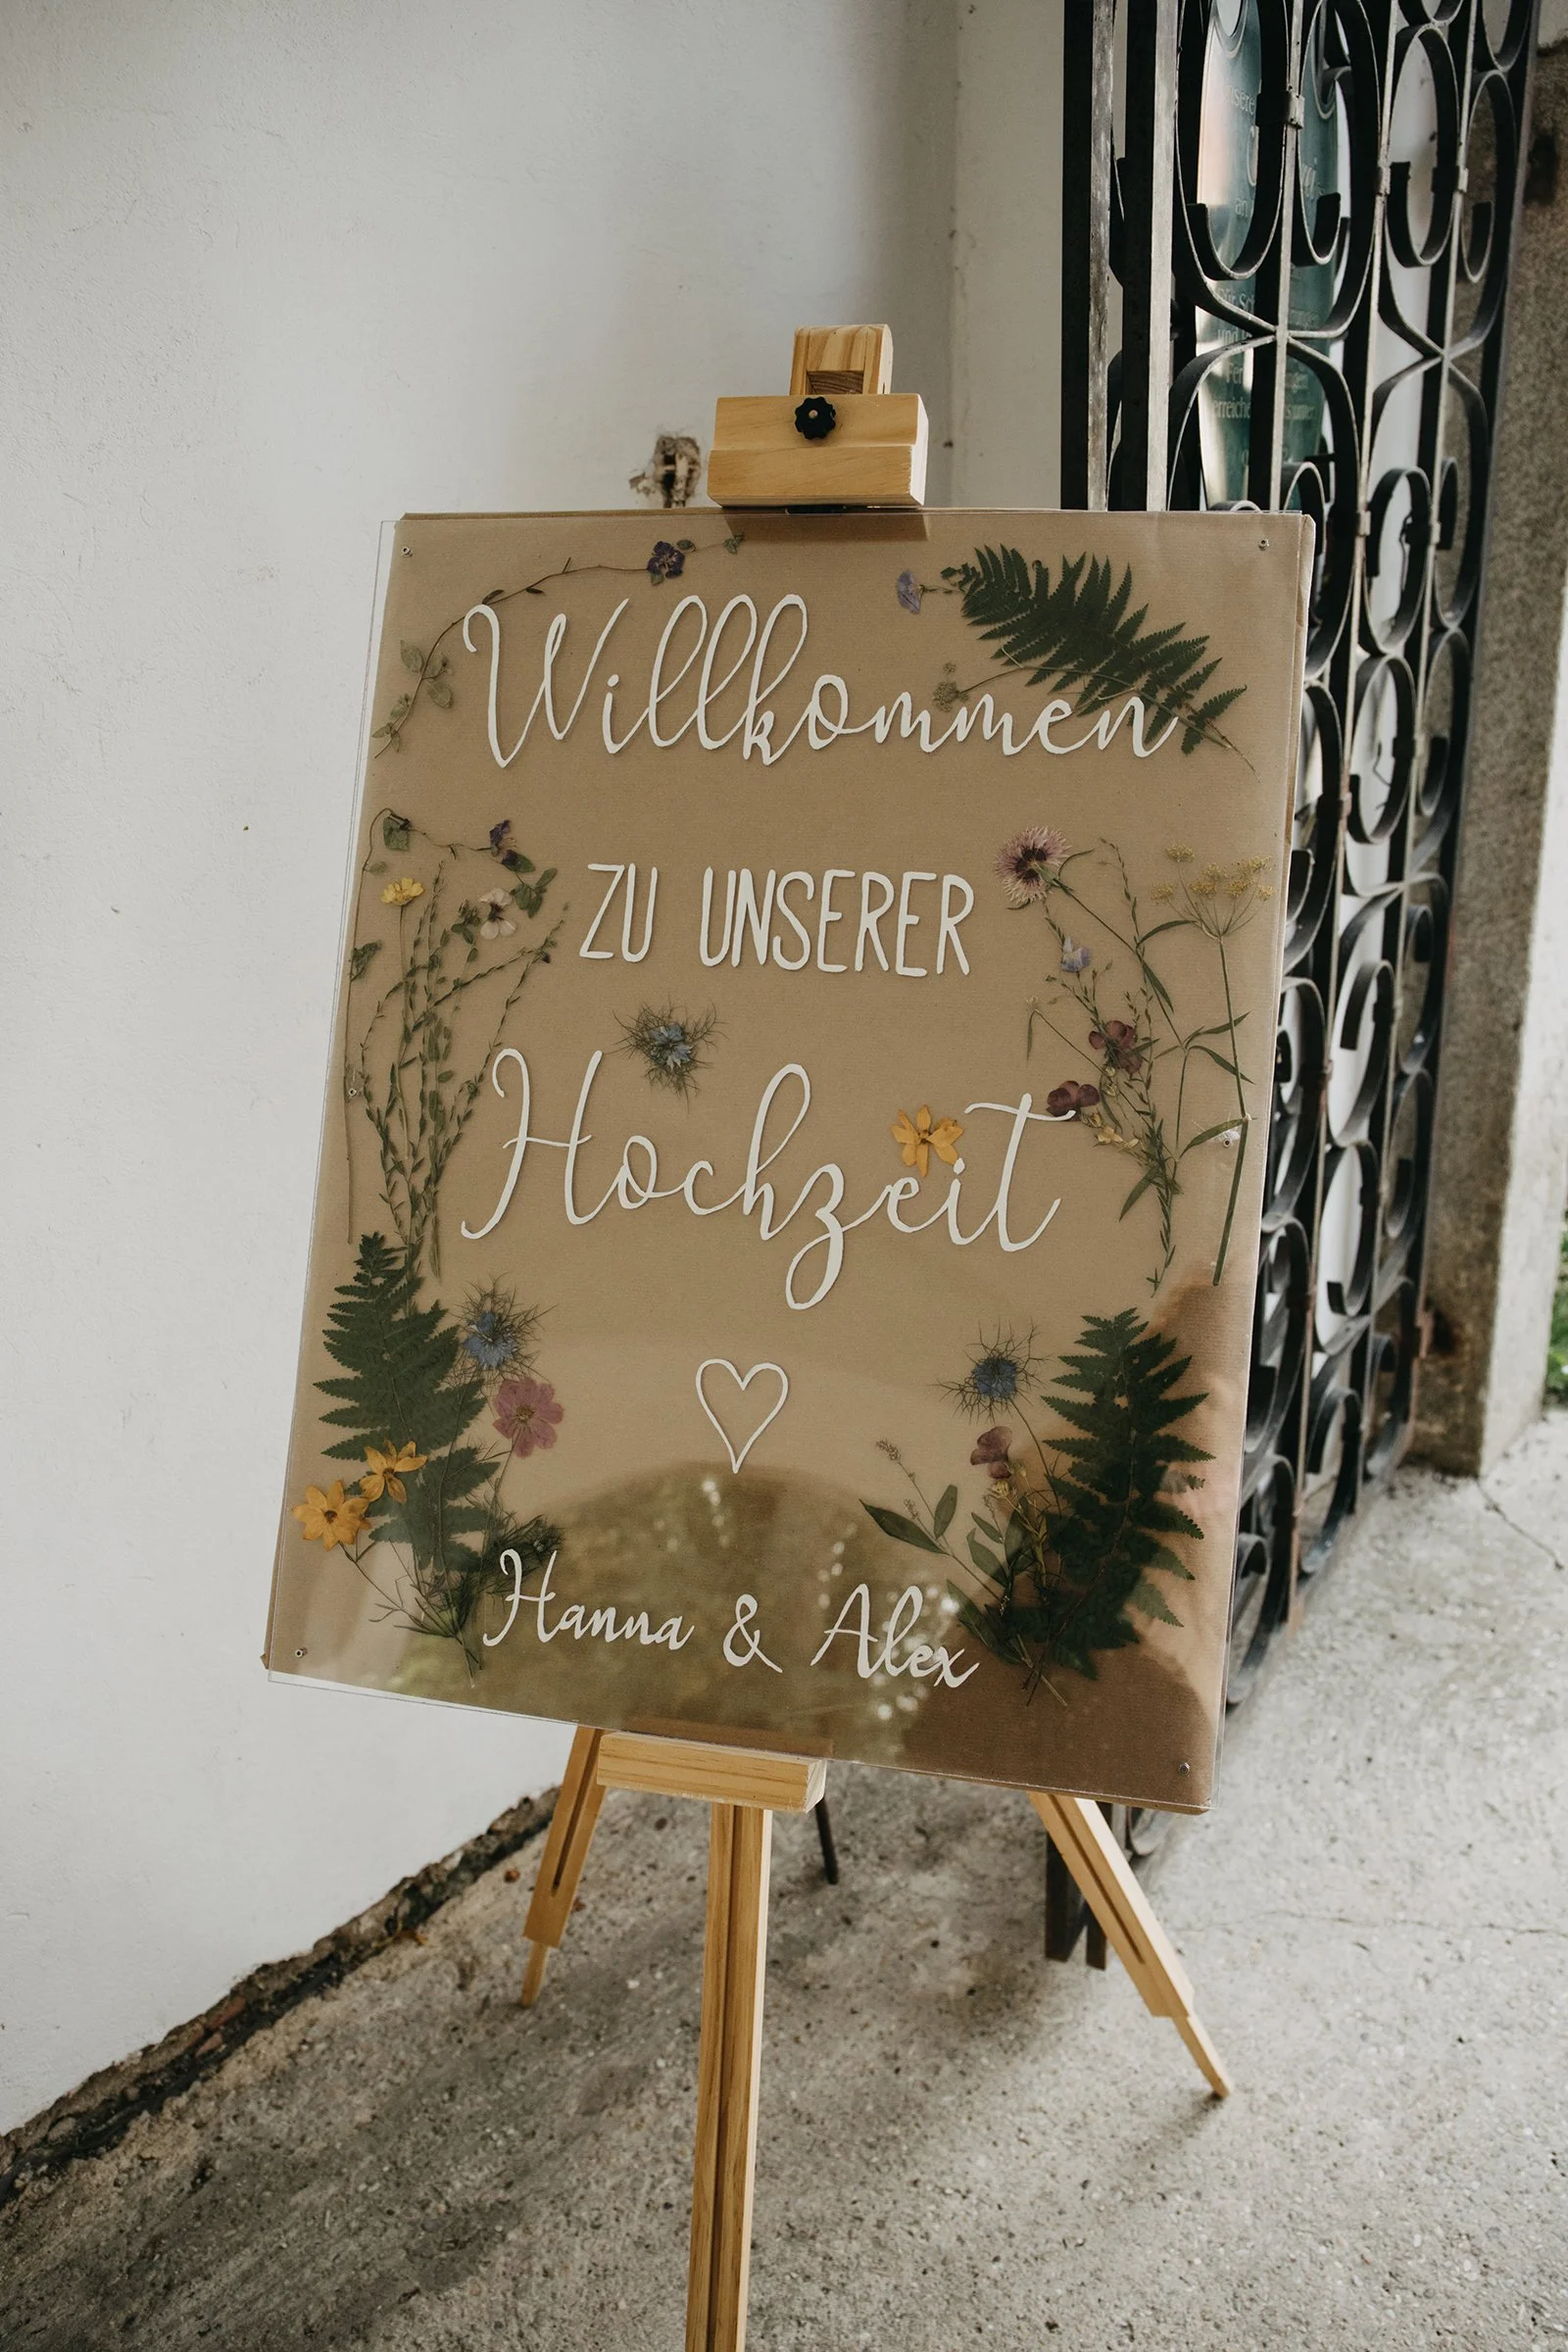 Willkommen
ZU UNSERER
Hochzeit
Hanna & Alex
und